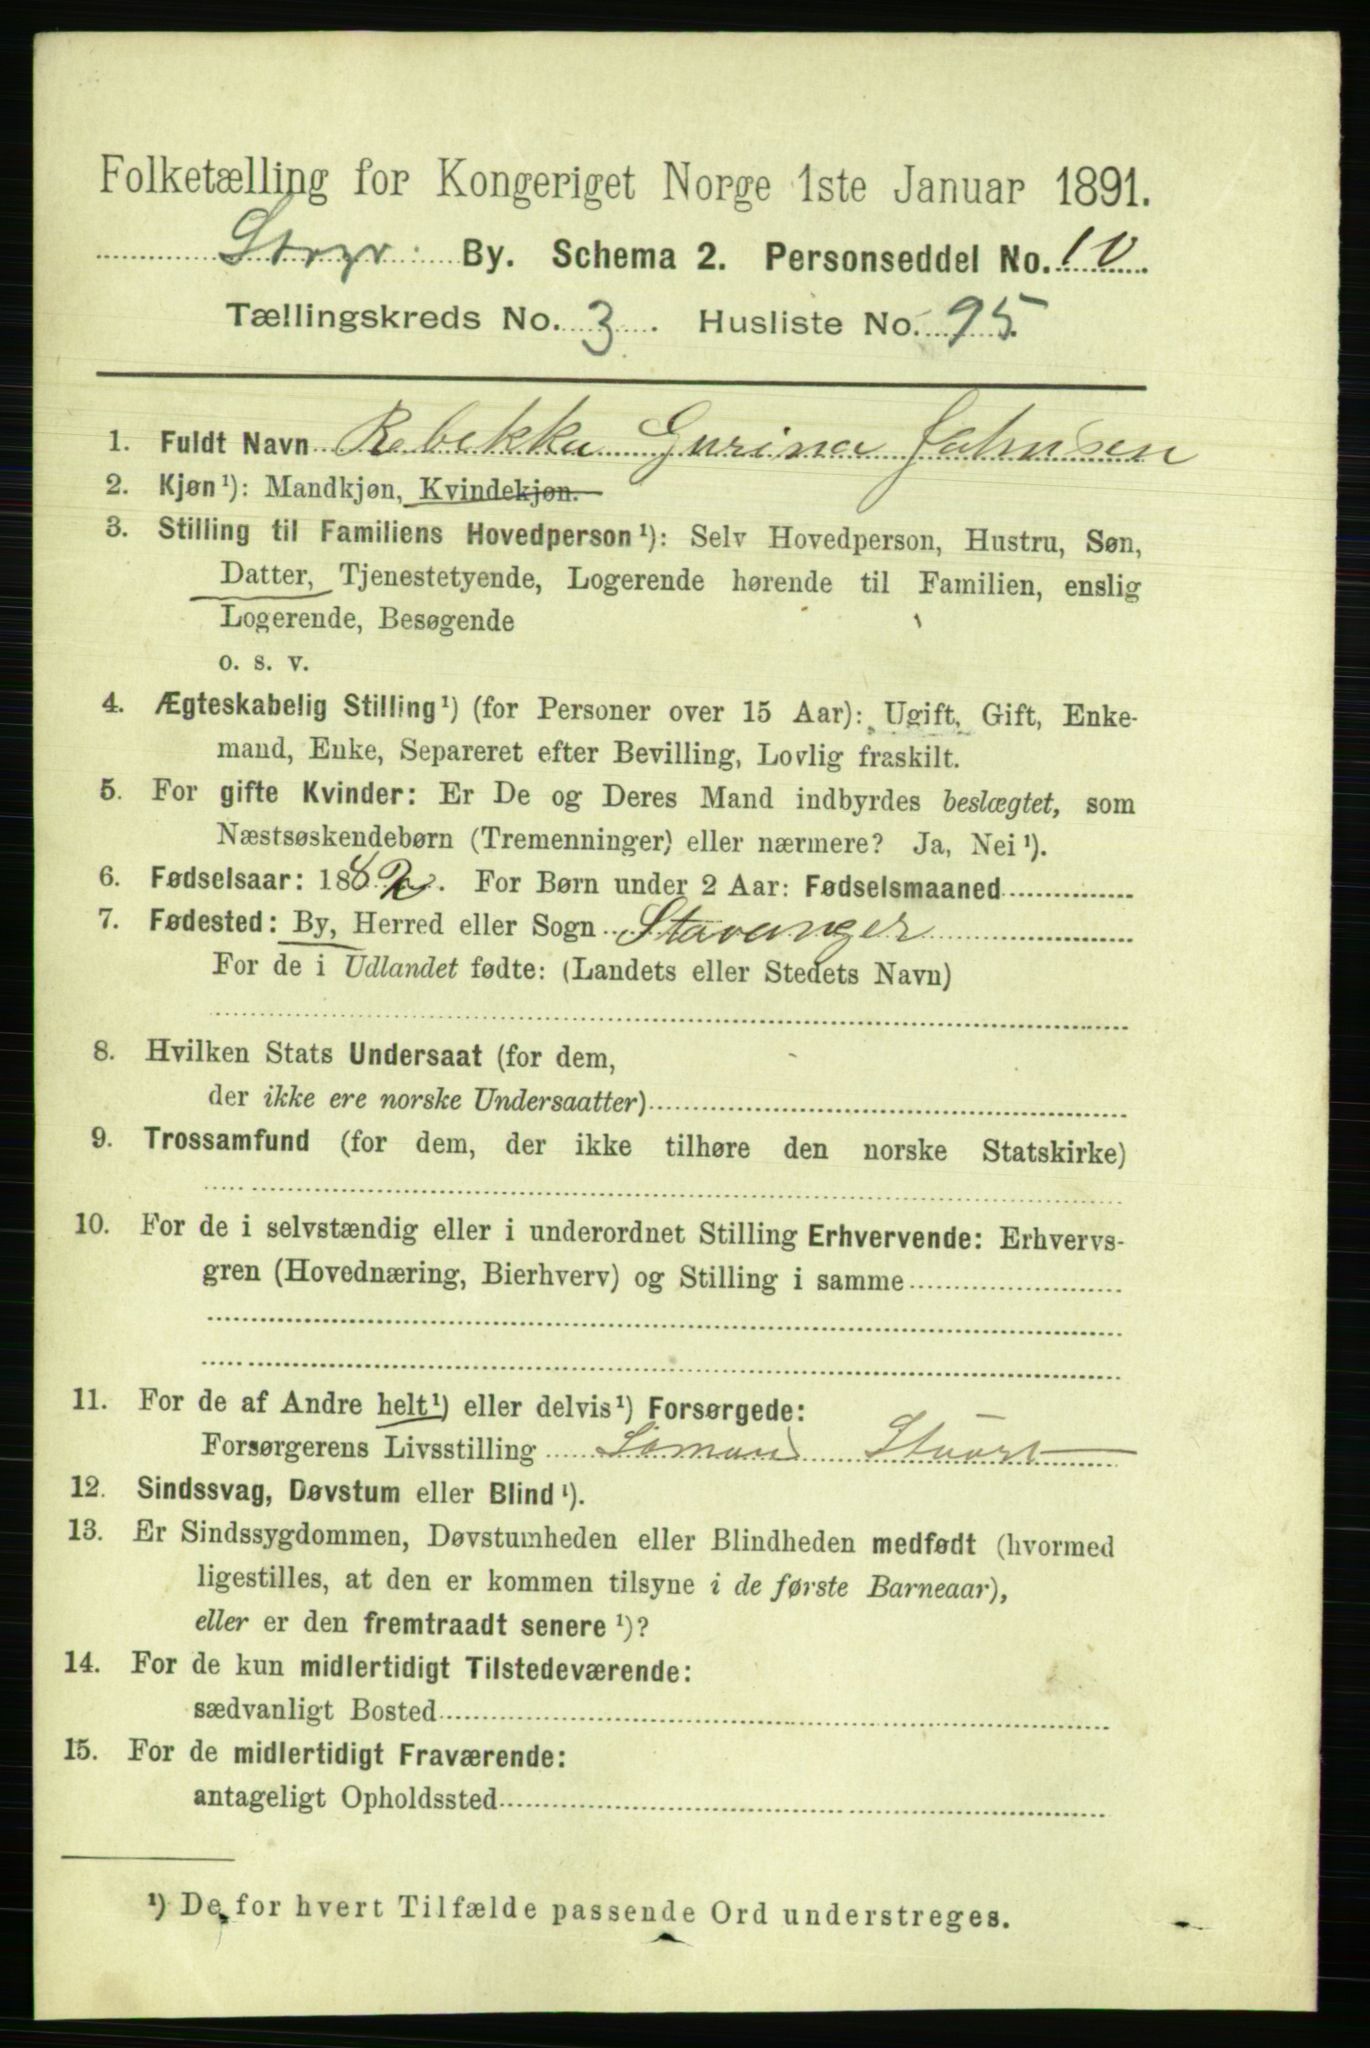 Folketælling for Kongeriget Norge 1ste Januar 1891.
By. Schema 2. Personseddel No. 10
Tællingskreds No. 3. Husliste No. 95
1. Fuldt Navn Rebekka Gurina Johnsen
2. Kjøn¹): Mandkjøn, Kvindekjøn.
3. Stilling til Familiens Hovedperson¹): Selv Hovedperson, Hustru, Søn,
Datter, Tjenestetyende, Logerende hørende til Familien, enslig
Logerende, Besøgende
o. s. v.
4. Ægteskabelig Stilling¹) (for Personer over 15 Aar): Ugift, Gift, Enke-
mand, Enke, Separeret efter Bevilling, Lovlig fraskilt.
5. For gifte Kvinder: Er De og Deres Mand indbyrdes beslægtet, som
Næstsøskendebørn (Tremenninger) eller nærmere? Ja, Nei¹).
6. Fødselsaar: 1882. For Børn under 2 Aar: Fødselsmaaned
7. Fødested: By, Herred eller Sogn Stavanger
For de i Udlandet fødte: (Landets eller Stedets Navn)
8. Hvilken Stats Undersaat (for dem,
der ikke ere norske Undersaatter)
9. Trossamfund (for dem, der ikke tilhøre den norske Statskirke)
10. For de i selvstændig eller i underordnet Stilling Erhvervende: Erhvervs-
gren (Hovednæring, Bierhverv) og Stilling i samme
11. For de af Andre helt¹) eller delvis¹) Forsørgede:
Forsørgerens Livsstilling Sømand Stuort
12. Sindssvag, Døvstum eller Blind¹).
13. Er Sindssygdommen, Døvstumheden eller Blindheden medfødt (hvormed
ligestilles, at den er kommen tilsyne i de første Barneaar),
eller er den fremtraadt senere¹)?
14. For de kun midlertidigt Tilstedeværende:
sædvanligt Bosted
15. For de midlertidigt Fraværende:
antageligt Opholdssted
¹) De for hvert Tilfælde passende Ord understreges.